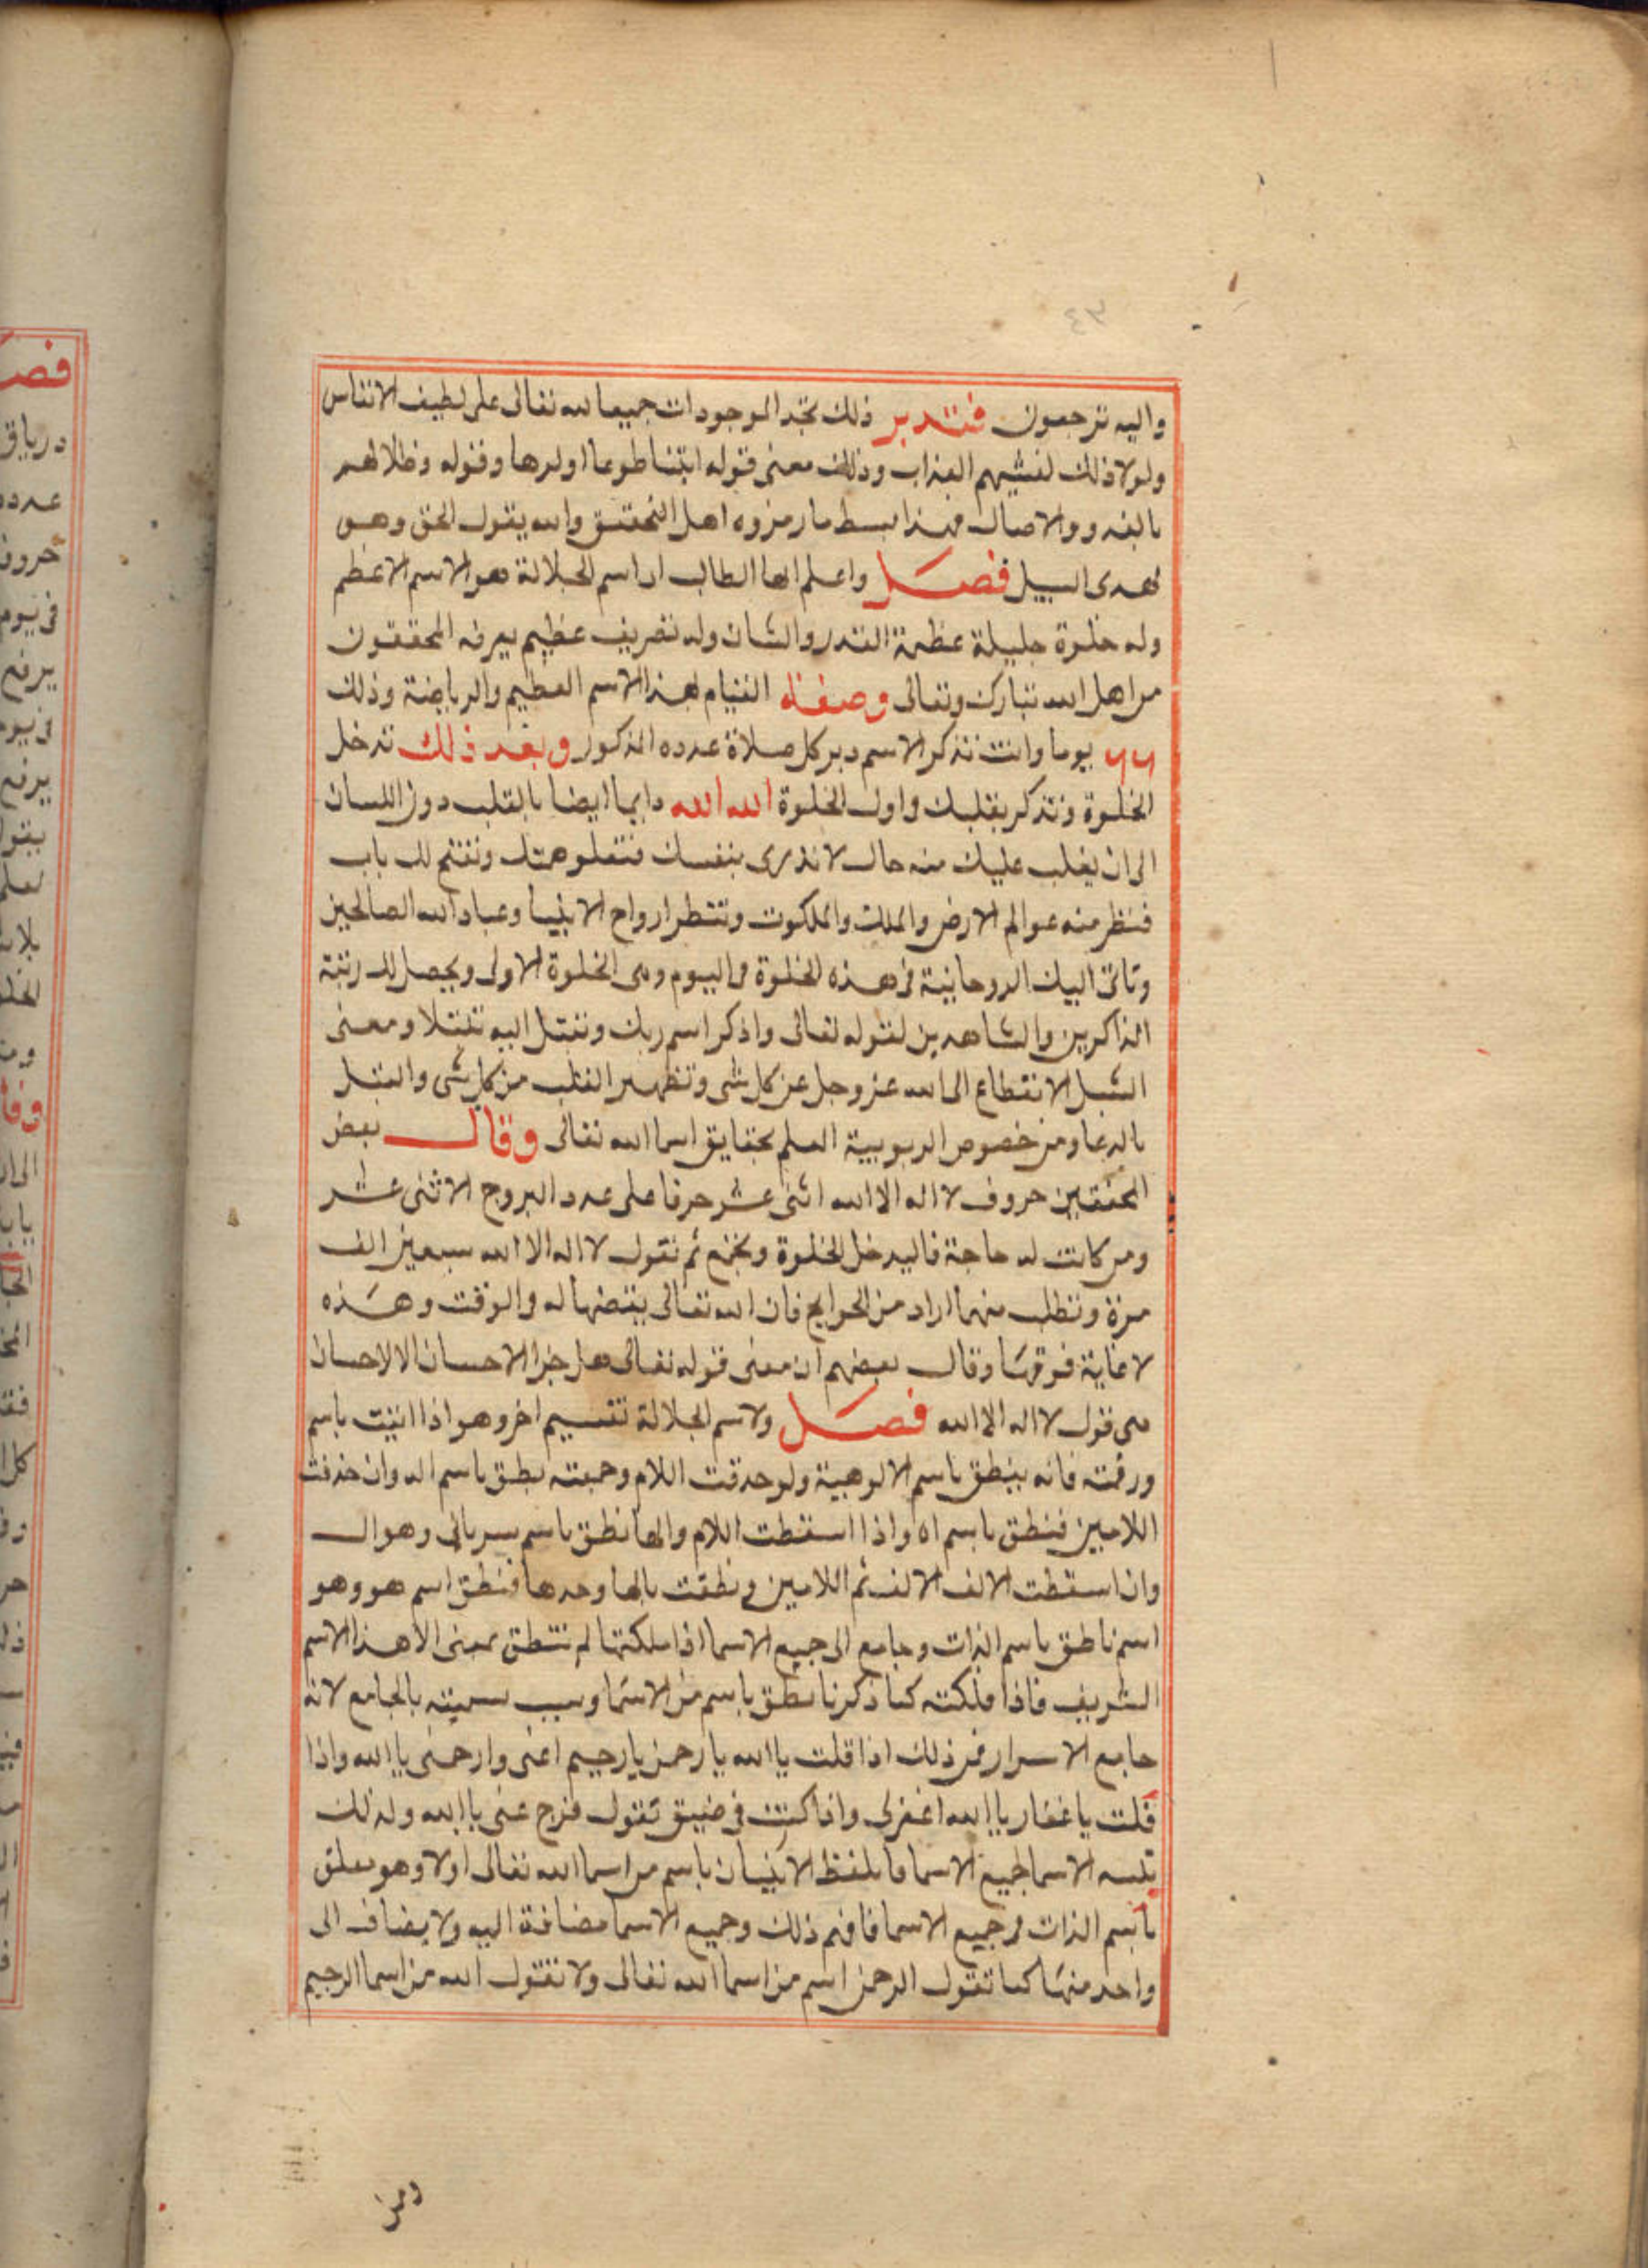 واليه ترجعون فتدبر ذلك تجد الموجودات جميعا لله تعالى على لطيف الانفاس
ولولا ذلك لغشيهم العذاب وذلك معنى قوله ايتنا طوعا او كرها وقوله وظلالهم
بالغدو والاصال فهذا بسط ما رمزوه اهل التحقيق والله يقول الحق وهو
يهدى السبيل فصل واعلم ايها الطالب ان اسم الجلالة هو الاسم الاعظم
وله خلوة جليلة عظيمة القدر والشان وله تصريف عظيم يعرفه المحققون
من اهل الله تبارك وتعالى وصفة القيام بهذا الاسم العظيم والرياضة وذلك
٦٦ يوما وانت تذكر الاسم دبر كل صلاة عدده المذكور وبعد ذلك تدخل
الخلوة وتذكر بقلبك واول الخلوة الله الله دايما ايضا بالقلب دون اللسان
الى ان يغلب عليك منه حال لا تدرى بنفسك فتعلو همتك وتفتح لك باب
فتنظر منه عوالم الارض والملك والملكوت وتنتظر ارواح الانبيا وعباد الله الصالحين
وتاتى اليك الروحانية فى هذه الخلوة فى اليوم وهى الخلوة الاولى ويحصل لك رتبة
الذاكرين والشاهدين لقوله تعالى واذكر اسم ربك وتبتل اليه تبتلا ومعنى
التبتل الانقطاع الى الله عز وجل عن كل شى وتطهير القلب من كل شى والتبتل
بالدعا ومن خصوص الربوبية العلم بحقايق اسما الله تعالى وقال بعض
المحققين حروف لا اله الا الله اثنى عشر حرفا على عدد البروج الاثنى عشر
ومن كانت له حاجة فاليدخل الخلوة ثم تقول لا اله الا الله سبعين الف
مرة وتطلب مهما اراد من الحوايج فان الله تعالى يقضيها له والوقت وهذه
لا غاية فوقها وقال بعضهم ان معنى قوله تعالى هل جزا الاحسان الا الاحسان
هى قول لا اله الا الله فصل ولاسم الجلالة تقسيم اخر وهو اذا اتيت باسم
ورقمته فانه ينطق باسم الالوهية ولو حدفت اللام وجمعته نطق باسم اله وان حذفت
اللامين فنطق باسم اه واذا اسقطت اللام والها نطق باسم سريانى وهو ال
وان اسقطت الالف الالف ثم اللامين ونطقت بالها وحدها فنطق اسم هو وهو
اسم ناطق باسم الذات وجامع الى جميع الاسما اذا ملكتها لم تنطق بمعنى الا هذا الاسم
الشريف فاذا ملكته كما ذكرنا نطق باسم من الاسما وسبب تسميته بالجامع لانه
جامع الاسرار فمن ذلك اذا قلت يا الله يا رحمن يا رحيم اغنى وارحمنى يا الله واذا
قلت يا غفار يا الله اغفرلى واذا كنت فى ضيق تقول فرج عنى يا الله ولذلك
الاسما لجميع الاسما فما يلفظ الانسان باسم من اسما الله تعالى اولا وهو معلق
باسم الذات فى جميع الاسما فافهم ذلك وجميع الاسما مضافة اليه ولا يضاف الى
واحد منها كما تقول الرحمن اسم من اسما الله تعالى ولا تقول الله من اسما الرحيم